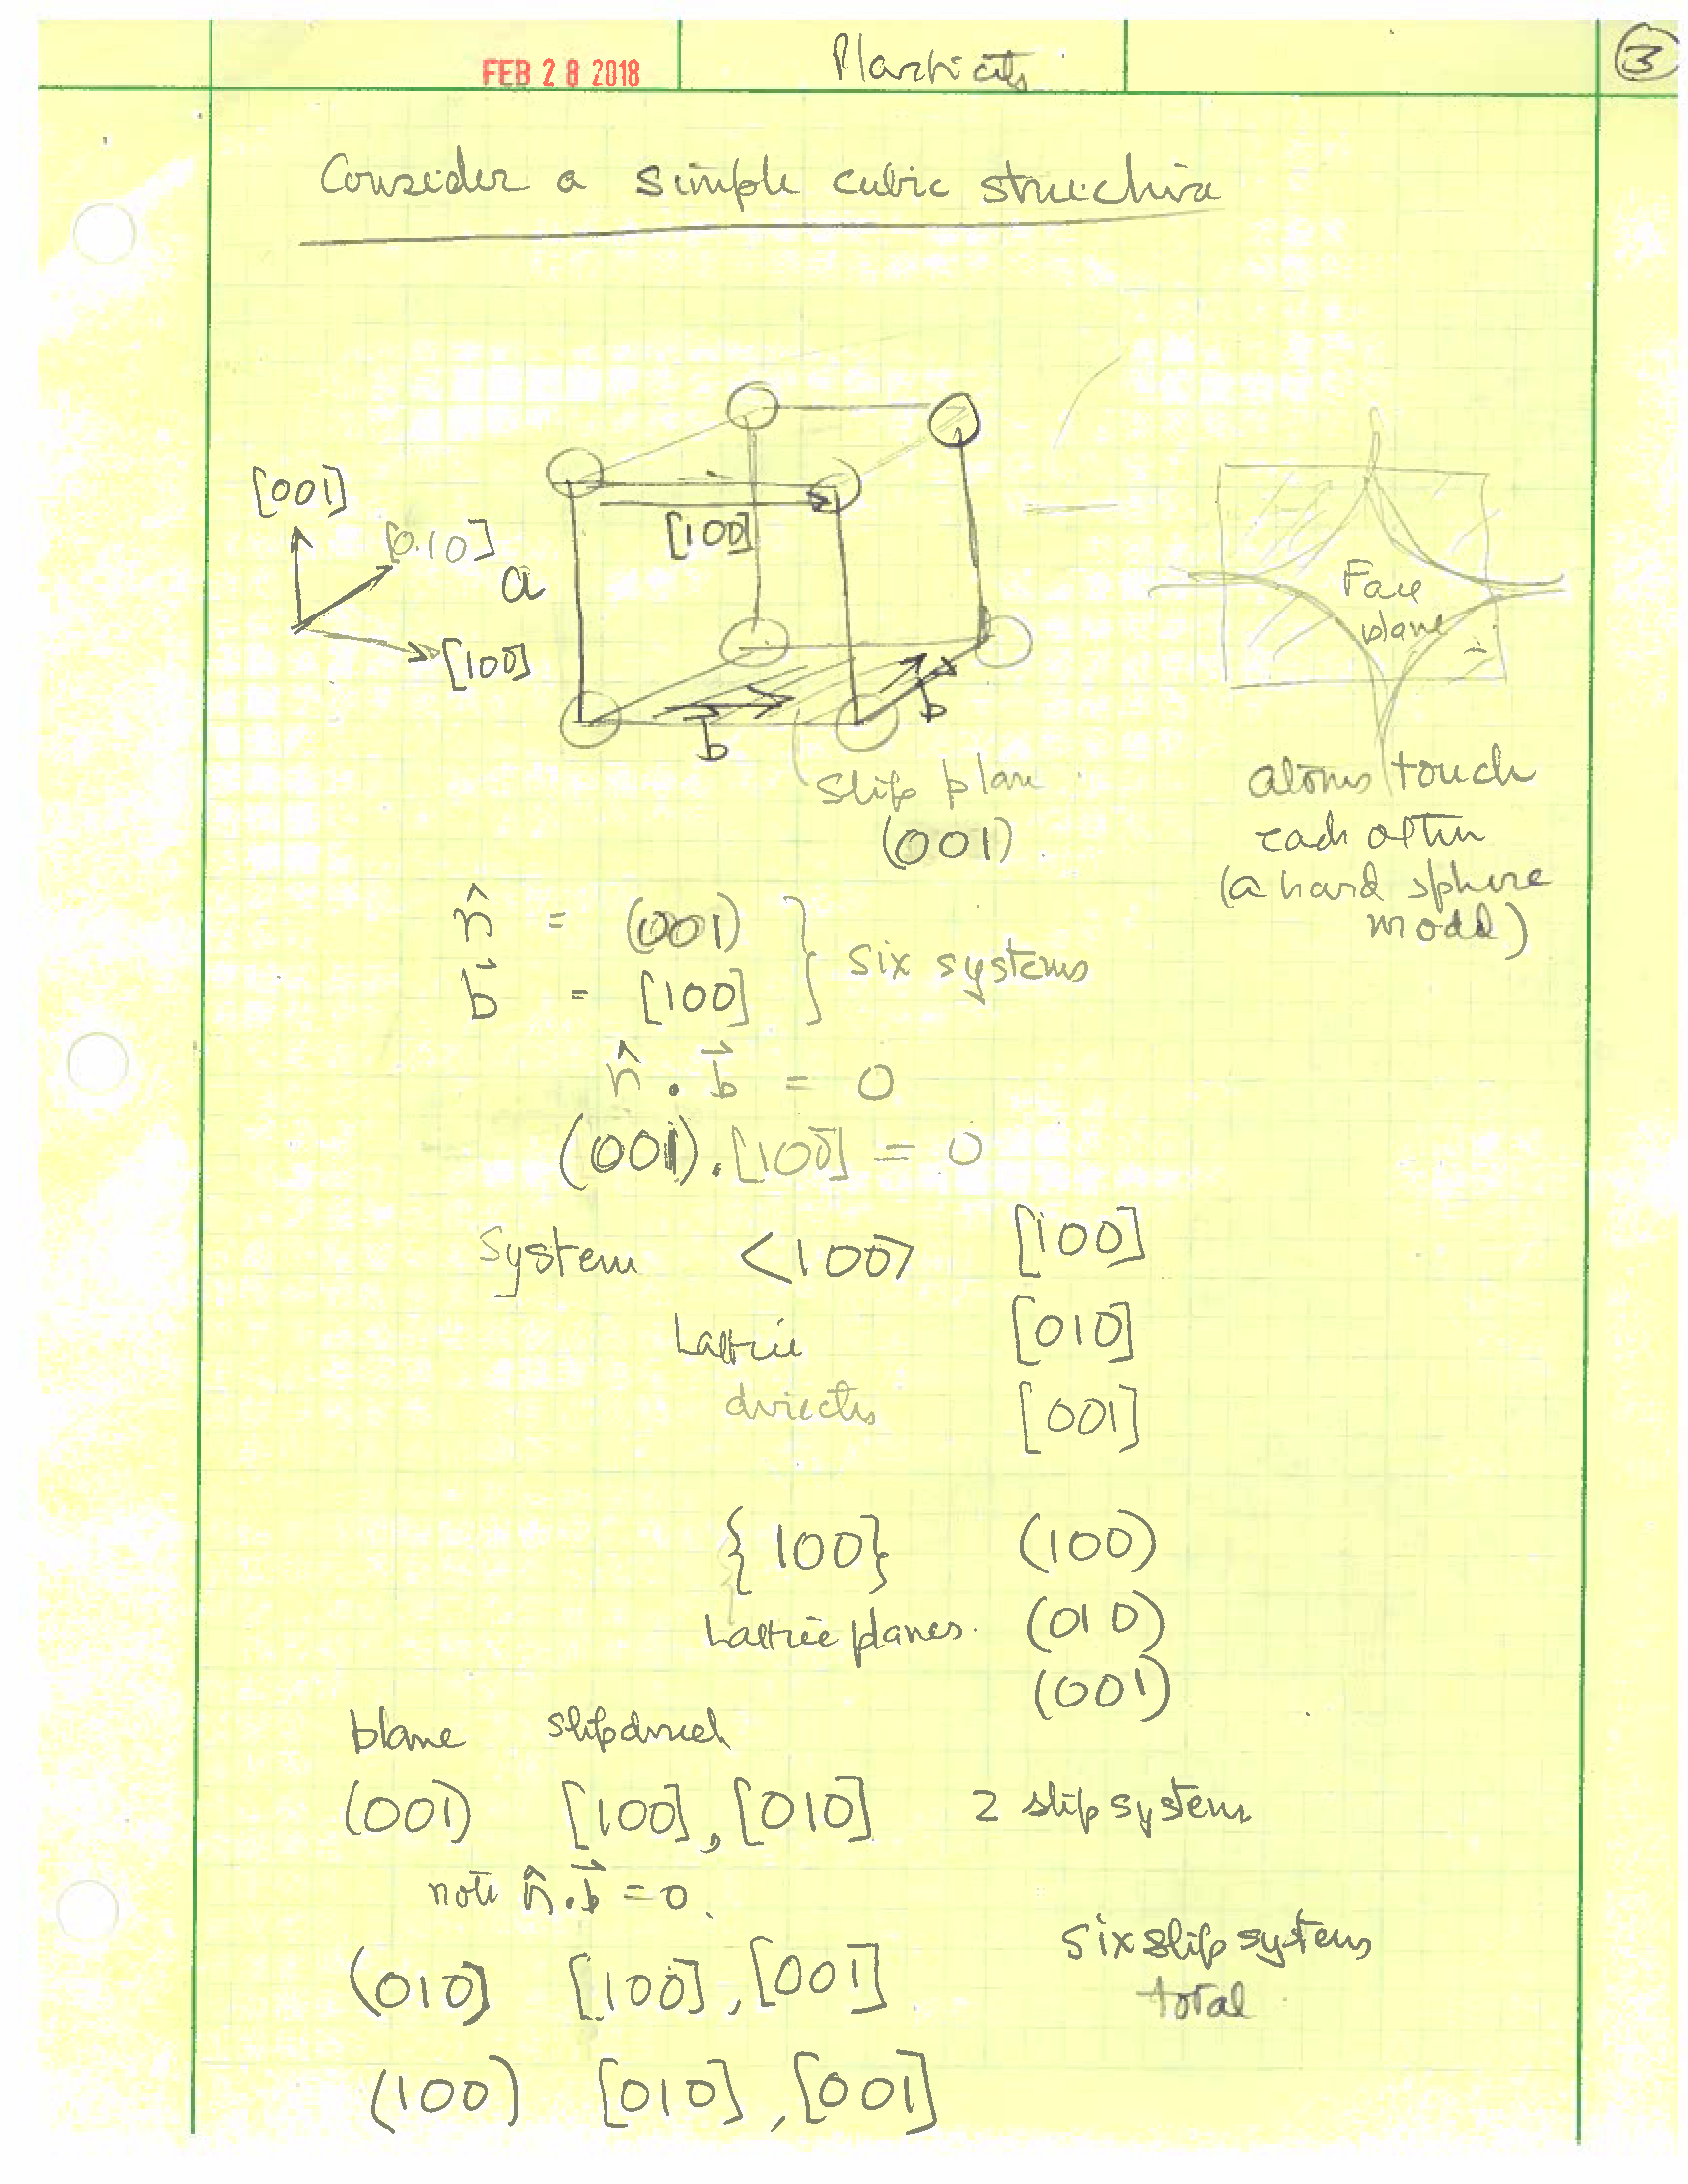 FEB 28 2018
Plasticity
3
Consider a simple cubic structure
[001]
[010]
[100]
a
[100]
b
b
Slip plane
(001)
Face
plane
atoms touch
each other
(a hard sphere
model)
n̂ = (001)
b⃗ = [100]
} six systems
n̂ . b⃗ = 0
(001).[100] = 0
System <100> [100]
Lattice [010]
directs [001]
{100} (100)
Lattice planes. (010)
(001)
plane slip direct
(001) [100], [010] 2 slip systems
note n̂.b⃗ = 0.
(010) [100], [001]
six slip systems
total
(100) [010], [001]